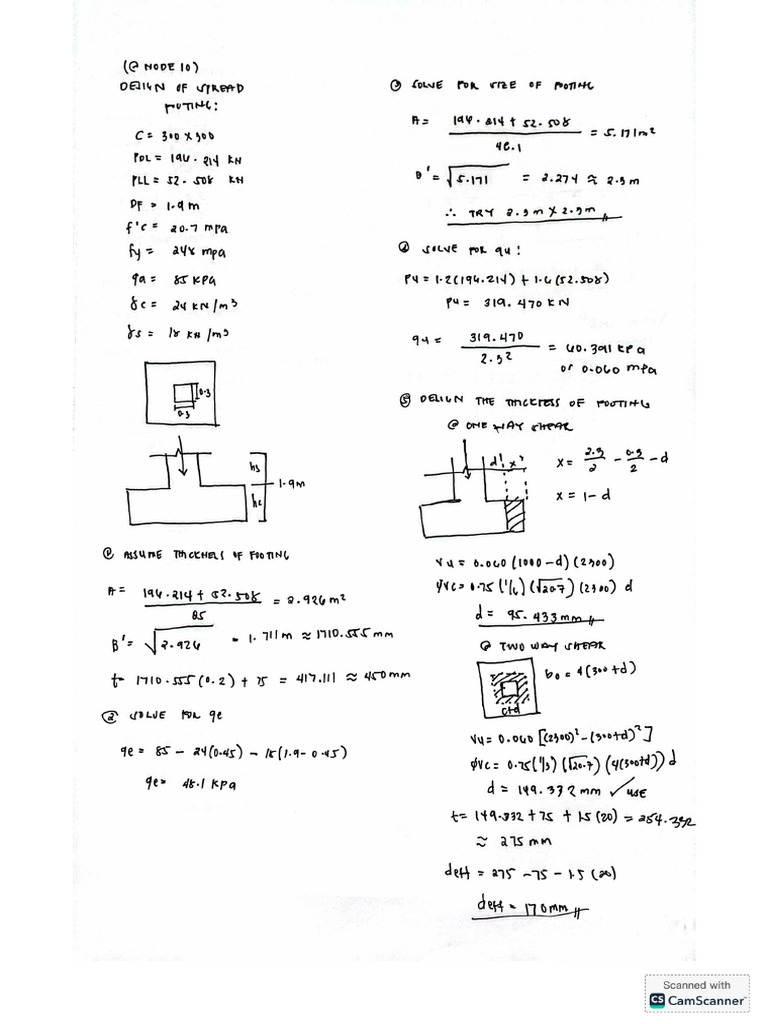 (@ NODE 10)
DESIGN OF SPREAD
FOOTING:
C = 300 x 300
PDL = 196.214 KN
PLL = 52.508 KN
DF = 1.9 m
f'c = 20.7 mpa
fy = 248 mpa
qa = 85 KPa
γc = 24 KN/m³
γs = 18 KN/m³
0.3
0.3
hs
1.9m
hc
① ASSUME THICKNESS OF FOOTING
A = 196.214 + 52.508 / 85 = 2.926 m²
B' = √2.926 = 1.711m ≈ 1710.555 mm
t = 1710.555 (0.2) + 75 = 417.111 ≈ 450mm
② SOLVE FOR qe
qe = 85 - 24(0.45) - 18(1.9 - 0.45)
qe = 48.1 KPa
③ SOLVE FOR SIZE OF FOOTING
A = 196.214 + 52.508 / 48.1 = 5.171m²
B' = √5.171 = 2.274 ≈ 2.3 m
∴ TRY 2.3m x 2.3m
④ SOLVE FOR qu:
Pu = 1.2(196.214) + 1.6(52.508)
Pu = 319.470 KN
qu = 319.470 / 2.3² = 60.391 kPa
or 0.060 mpa
⑤ DESIGN THE THICKNESS OF FOOTING
@ ONE WAY SHEAR
d x
x = 2.3/2 - 0.3/2 - d
x = 1 - d
Vu = 0.060 (1000 - d) (2300)
φVc = 0.75 (1/6) (√20.7) (2300) d
d = 95.433mm
@ TWO WAY SHEAR
bo = 4(300 + d)
c+d
Vu = 0.060 [(2300)² - (300+d)²]
φVc = 0.75 (1/3) (√20.7) (4(300+d)) d
d = 149.332 mm ✓ USE
t = 149.332 + 75 + 1.5 (20) = 254.332
≈ 275 mm
deff = 275 - 75 - 1.5 (20)
deff = 170mm
Scanned with
CS CamScanner